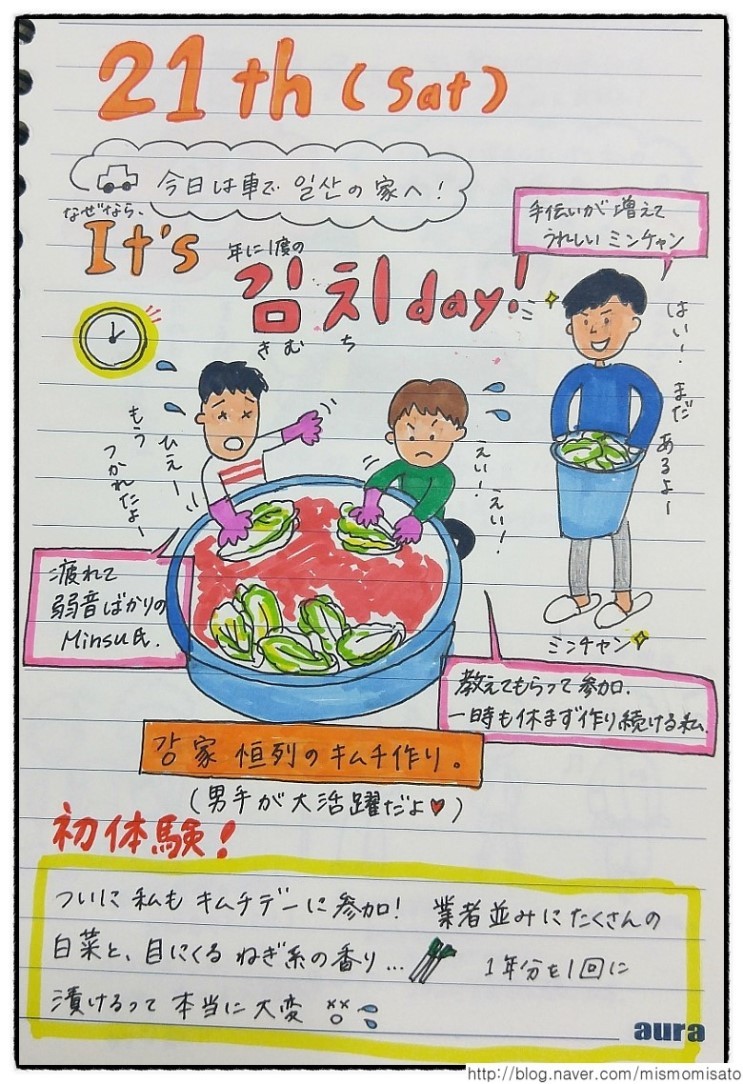 21th (Sat)
今日は車で 일산の家へ!
なぜなら、
It's
年に1度の
김치day!
きむち
手伝いが増えて
うれしいミンチャン
はい! まだ あるよー
ひえー
もう
つかれたよー
えい! えい!
疲れて
弱音ばかりの
Minsu氏.
ミンチャン
教えてもらって参加.
一時も休まず作り続ける私.
강家 恒列のキムチ作り。
(男手が大活躍だよ♥)
初体験!
ついに私もキムチデーに参加! 業者並みにたくさんの
白菜と、目にくるねぎ系の香り... 1年分を1回に
漬けるって本当に大変
aura
http://blog.naver.com/mismomisato